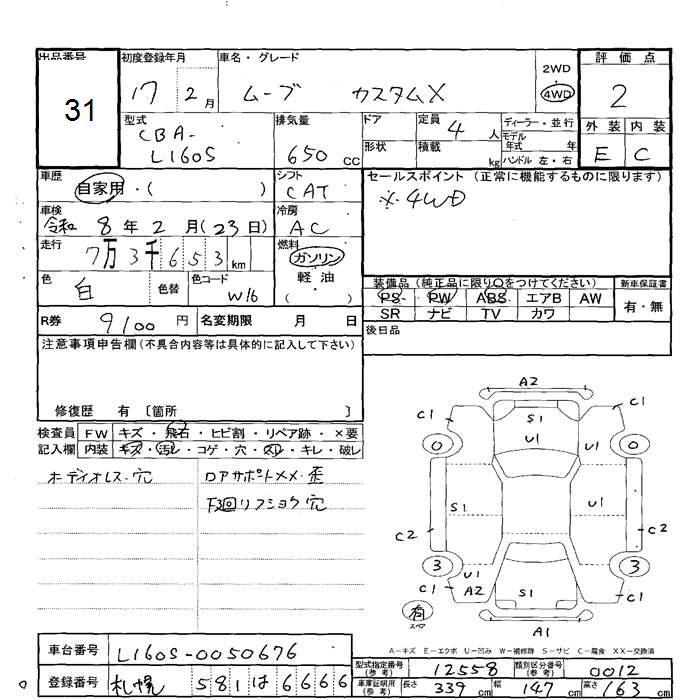 出品番号
31
初度登録年月
17 2月
車名・グレード
ムーブ カスタムX
2WD
4WD
評価点
2
外装 内装
E C
型式
CBA-
L160S
排気量
650 cc
ドア
形状
定員
4人
積載
kg
ディーラー・並行
モデル年式 年
ハンドル 左・右
車歴
自家用・( )
シフト
CAT
セールスポイント (正常に機能するものに限ります)
※4WD
車検
令和 8年 2月(23日)
冷房
AC
走行
7万3千653km
燃料
ガソリン
軽油
( )
色
白
色替
色コード
W16
装備品(純正品に限り○をつけてください)
PS PW ABS エアB AW
SR ナビ TV カワ
新車保証書
有・無
R券 9100円
名変期限 月 日
後日品
注意事項申告欄(不具合内容等は具体的に記入して下さい)
修復歴 有 〔箇所 〕
検査員記入欄
FW キズ・飛石・ヒビ割・リペア跡・×要
内装 キズ・汚レ・コゲ・穴・スリ・キレ・破レ
オーディオレス・穴
ロアサポートXX・歪
下廻リフショク穴
A2
C1 S1 C1
U1 U1
0 0
S1 U1
C2 C2
3 3
U1
A2
C1 S1 C1
有
スペア
A1
A-キズ E-エクボ U-凹み W-補修跡 S-サビ C-腐食 XX-交換済
車台番号 L160S-0050676
登録番号 札幌 581 は 6666
型式指定番号(参考) 12558
類別区分番号(参考) 0012
車庫証明用(参考) 長さ 339cm 幅 147cm 高さ 163cm